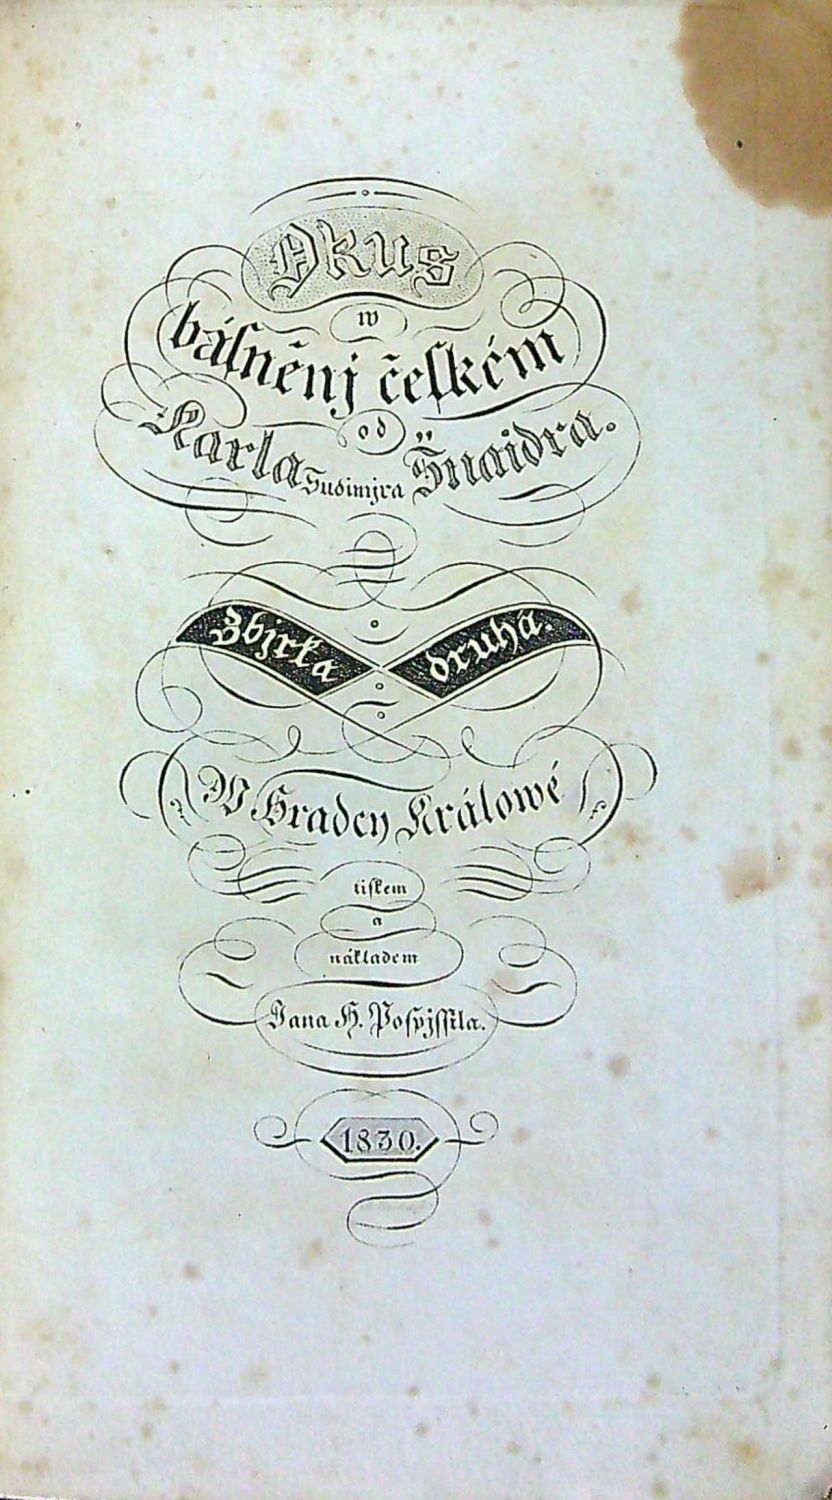 Okus
w
básněnj českém
od
Karla Sudimjra Šnaidra.
Zbjrka druhá.
W Hradcy Králowé
tiskem
a
nákladem
Jana H. Pospjssila.
1830.